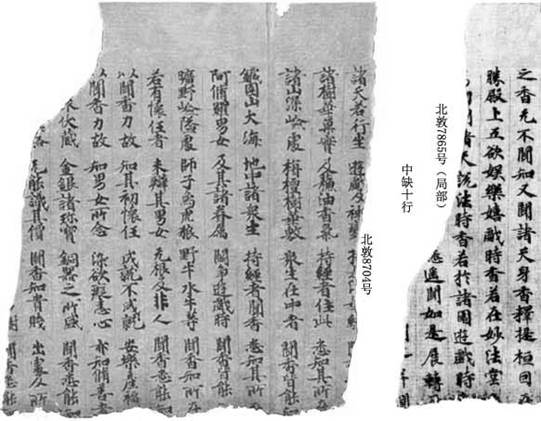 之香无不聞知又聞諸天身香釋提桓因在
勝殿上五欲娛樂嬉戲時香若在妙法堂
聞諸天說法時香若於諸園遊戲時
悉遙聞如是展轉
北敦7865号（局部）
中缺十行
北敦8704号
諸天若行坐 遊戲及神變
諸樹華菓實 及蘇油香氣 持經者住此 悉知其所
諸山深嶮處 栴檀樹華敷 衆生在中者 聞香皆能
鐵圍山大海 地中諸衆生 持經者聞香 悉知其所
阿脩羅男女 及其諸眷属 鬪諍遊戲時 聞香皆能
曠野嶮隘處 師子烏虎狼 野牛水牛等 聞香知所在
若有懷任者 未辯其男女 无根及非人 聞香悉能知
以聞香力故 知其初懷任 成就不成就 安樂產福
以聞香力故 知男女所念 染欲癡恚心 亦知脩善者
伏藏 金銀諸珎寶 銅器之所盛 聞香悉能知
无能識其價 聞香知貴賤 出處及所